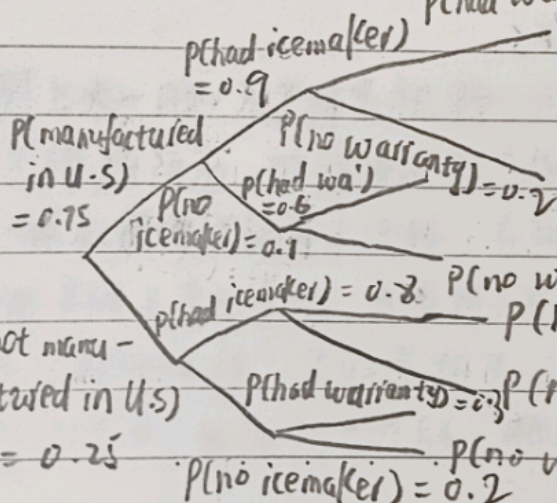 P(had
P(had icemaker)
= 0.9
P(manufactured
in U.S)
= 0.75
P(no warranty) = 0.2
P(had wa')
= 0.6
P(no
icemaker) = 0.1
P(no w
P(had icemaker) = 0.8
P(
ot manu-
tured in U.S)
= 0.25
P(had warranty) = 0.3
P(
P(no w
P(no icemaker) = 0.2